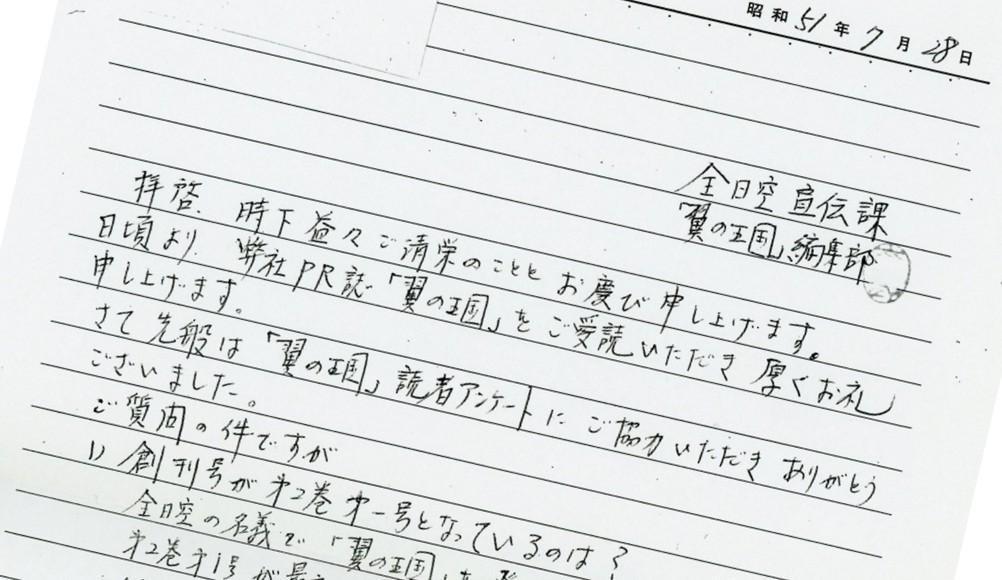 昭和51年7月28日
全日空宣伝課
「翼の王国」編集部
拝啓、時下益々ご清栄のこととお慶び申し上げます。
日頃より、弊社PR誌「翼の王国」をご受読いただき厚くお礼
申し上げます。
さて先般は「翼の王国」読者アンケートにご協力いただきありがとう
ございました。
ご質問の件ですが
1) 創刊号が第2巻第一号となっているのは?
全日空の名義で「翼の王国」を
第2巻第1号が